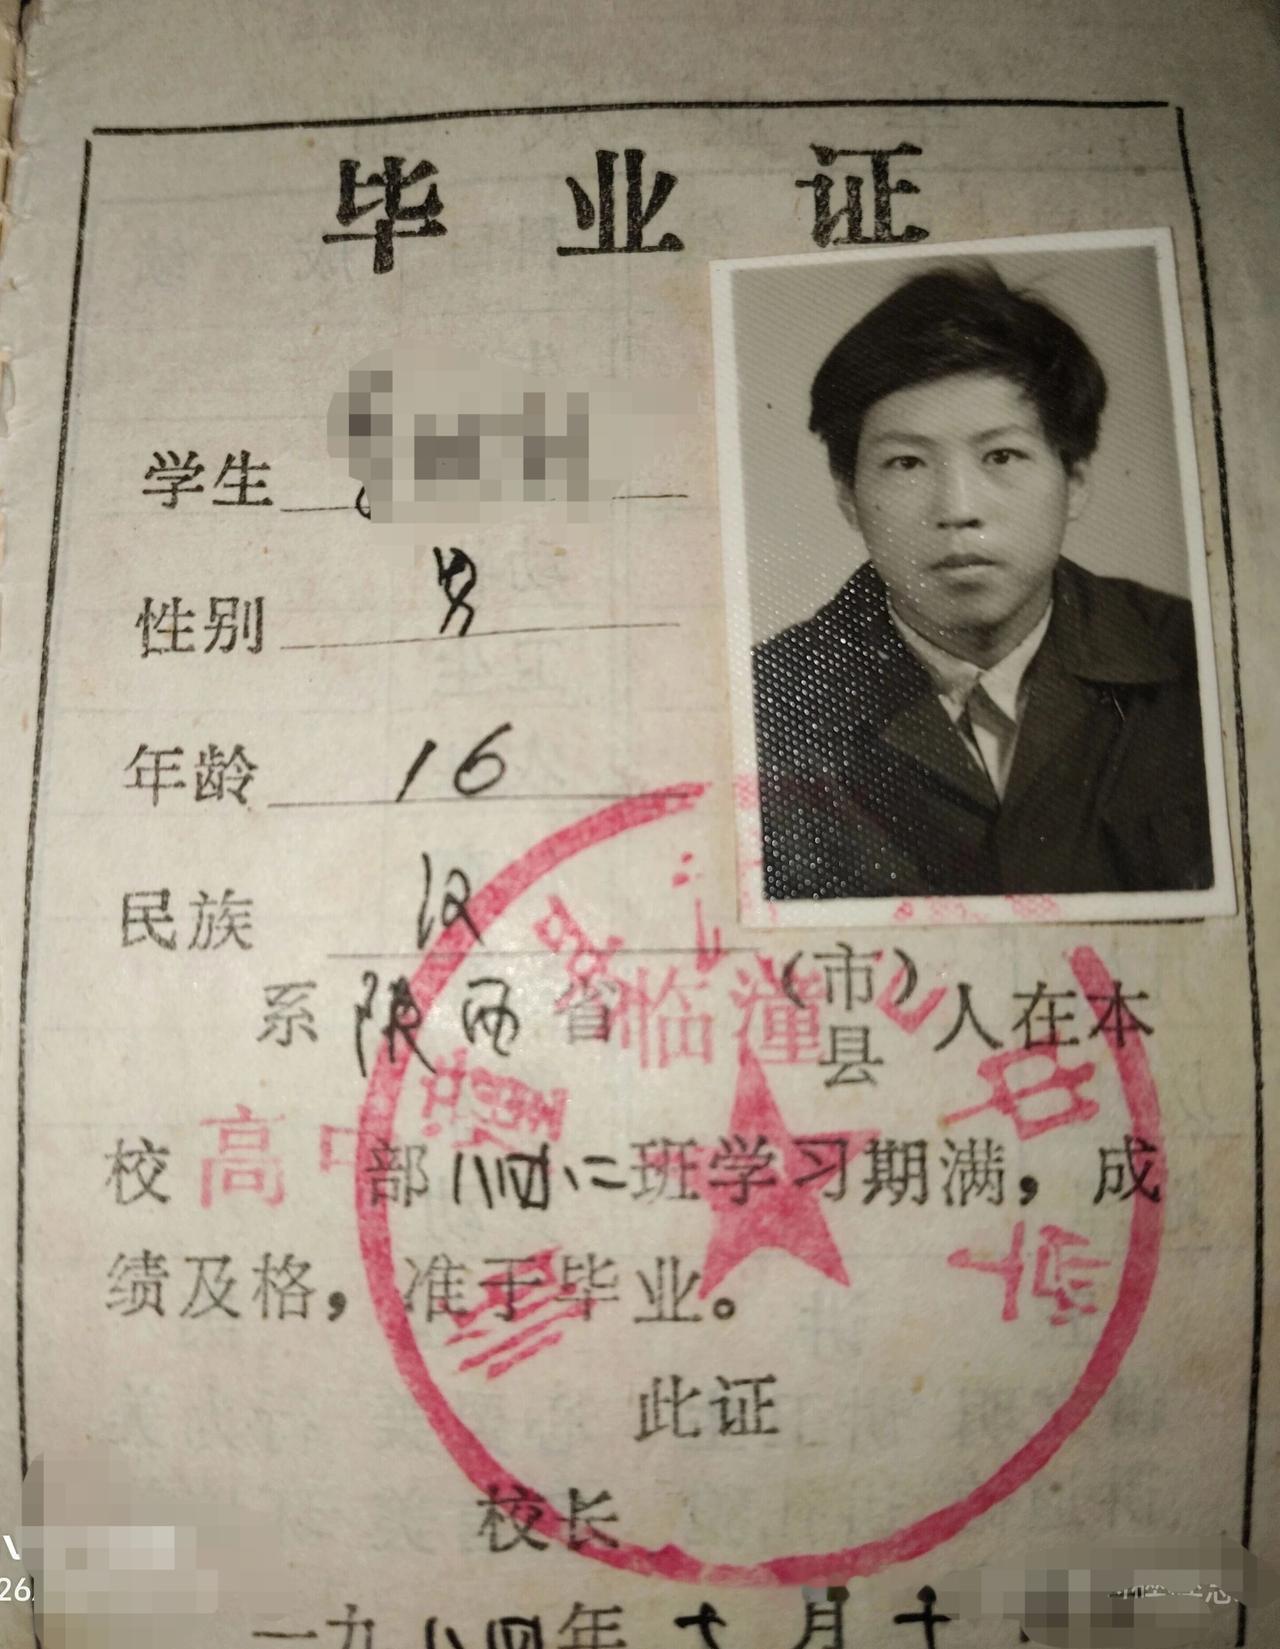 毕业证
学生
性别 男
年龄 16
民族 汉
系陕西省临潼(市)县人在本
校高中部八四.二班学习期满，成
绩及格，准于毕业。
此证
校长
一九八四年七月十